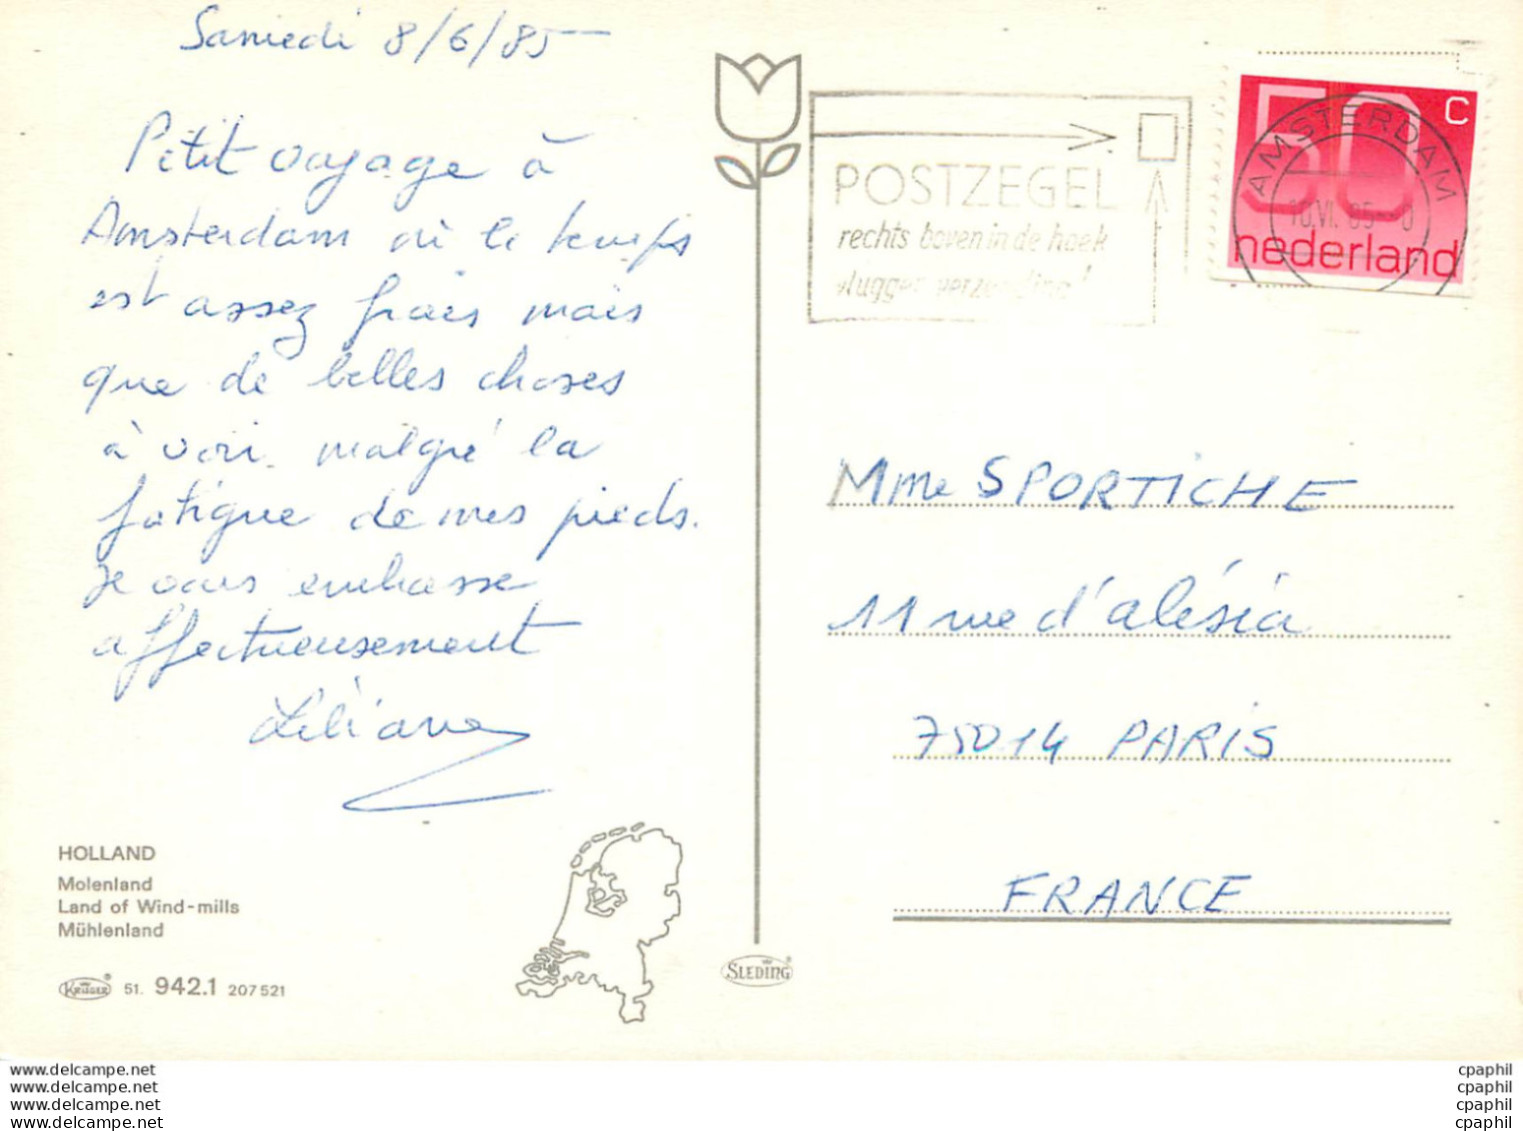 Samedi 8/6/85
Petit voyage à
Amsterdam où le temps
est assez frais mais
que de belles choses
à voir malgré la
fatigue de mes pieds.
Je vous embrasse
affectueusement
Liliane
HOLLAND
Molenland
Land of Wind-mills
Mühlenland
KRÜGER 51. 942.1 207521
SLEDING
POSTZEGEL
rechts boven in de hoek
vlugger verzending!
50 c
nederland
AMSTERDAM
10.VI. 85
Mme SPORTICHE
11 rue d'alésia
75014 PARIS
FRANCE
www.delcampe.net
www.delcampe.net
www.delcampe.net
www.delcampe.net
cpaphil
cpaphil
cpaphil
cpaphil